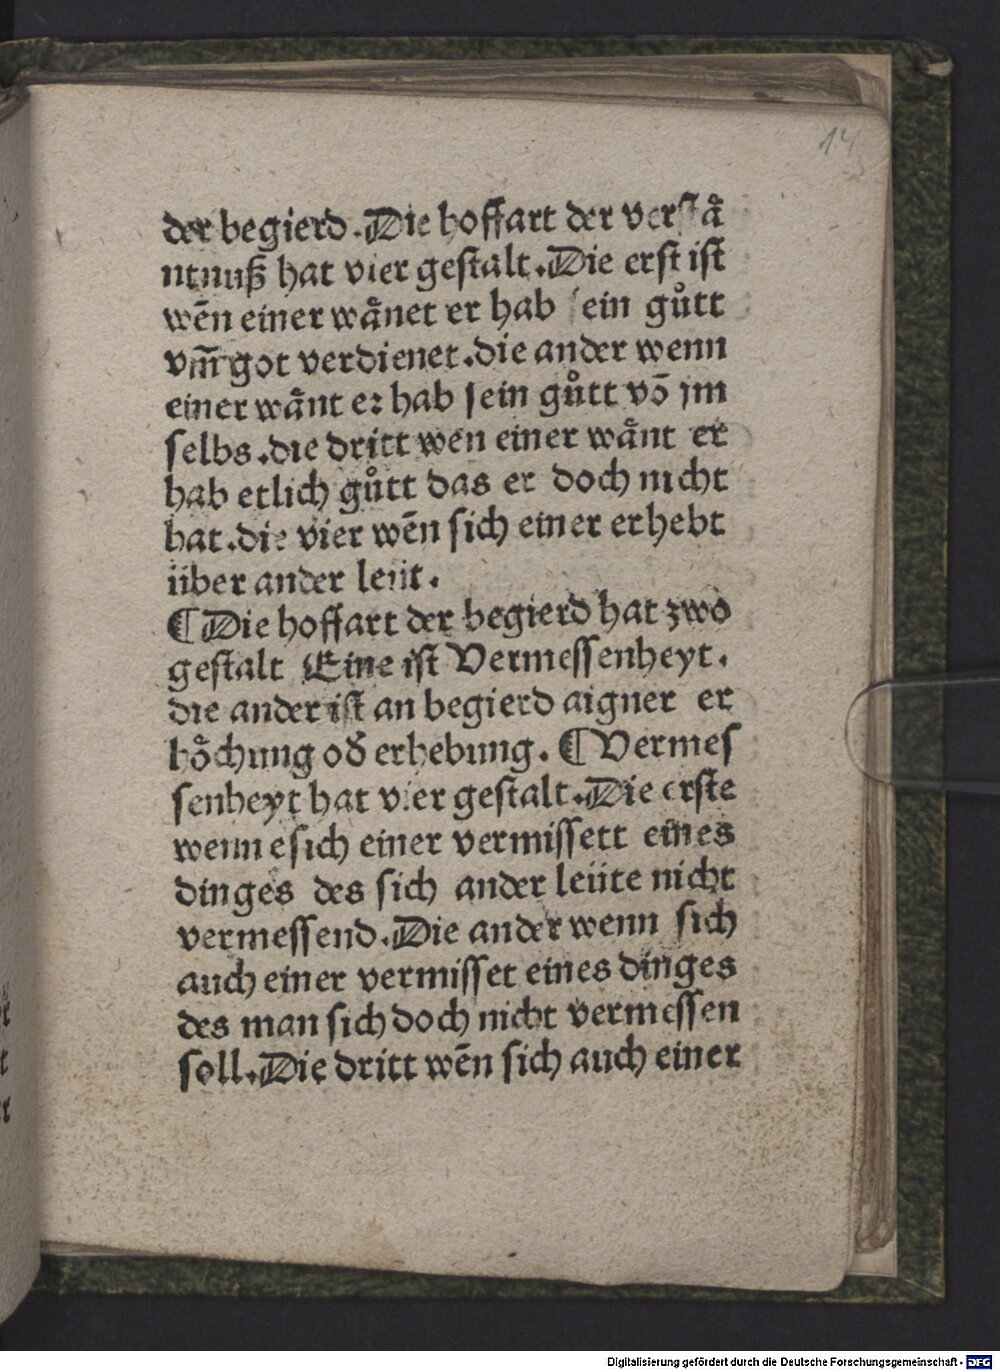 14
der begierd. Die hoffart der verstaͤ
ntnuß hat vier gestalt. Die erst ist
wen̄ einer waͤnet er hab sein guͦtt
vm̄ got verdienet. die ander wenn
einer waͤnt er hab sein guͦtt vō jm
selbs. die dritt wen einer waͤnt er
hab etlich guͦtt das er doch nicht
hat. die vier wen̄ sich einer erhebt
über ander leüt.
¶ Die hoffart der begierd hat zwo
gestalt Eine ist Vermessenheyt.
die ander ist an begierd aigner er
hoͤchung od̓ erhebung. ¶ Vermes
senheyt hat vier gestalt. Die erste
wenn esich einer vermissett eines
dinges des sich ander leüte nicht
vermessend. Die ander wenn sich
auch einer vermisset eines dinges
des man sich doch nicht vermessen
soll. Die dritt wen̄ sich auch einer
Digitalisierung gefördert durch die Deutsche Forschungsgemeinschaft - DFG